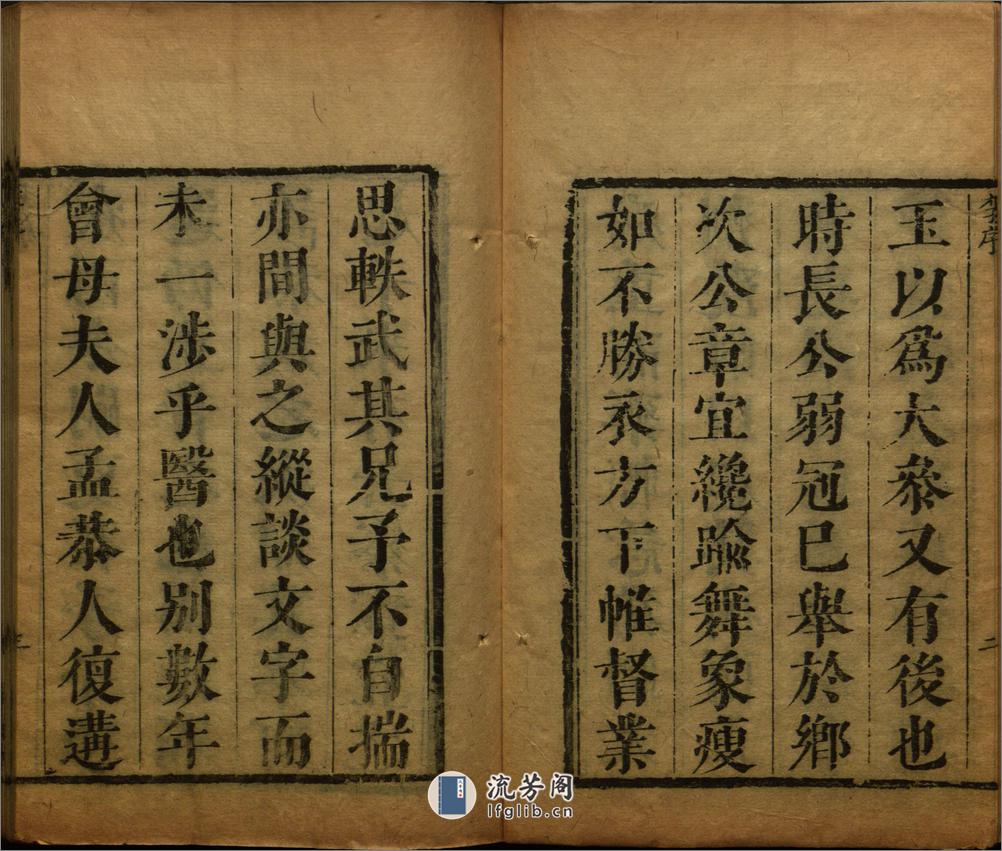 玉以爲大叅又有後也
時長公弱冠已舉於鄉
次公章宜纔踰舞象瘦
如不勝衣方下帷督業
思軼武其兄予不自揣
亦間與之縱談文字而
未一涉乎醫也別數年
會母夫人孟恭人復遘
流芳阁
lfglib.cn